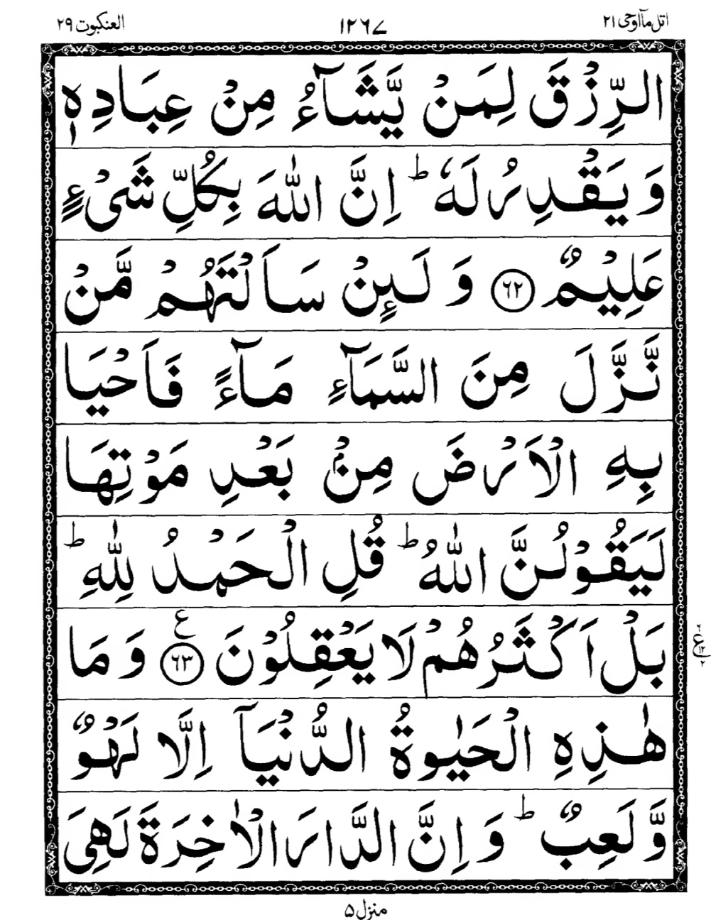 اتل مآ اوحی ٢١ ١٢٦٧ العنکبوت ٢٩
الرِّزْقَ لِمَنْ يَّشَآءُ مِنْ عِبَادِهٖ
وَ يَقْدِرُ لَهٗ ؕ اِنَّ اللّٰهَ بِكُلِّ شَیْءٍ
عَلِيْمٌ ﴿٦٢﴾ وَ لَىِٕنْ سَاَلْتَهُمْ مَّنْ
نَّزَّلَ مِنَ السَّمَآءِ مَآءً فَاَحْيَا
بِهِ الْاَرْضَ مِنْۢ بَعْدِ مَوْتِهَا
لَيَقُوْلُنَّ اللّٰهُ ؕ قُلِ الْحَمْدُ لِلّٰهِ ؕ
بَلْ اَكْثَرُهُمْ لَا يَعْقِلُوْنَ ﴿٦٣﴾ ع وَ مَا
هٰذِهِ الْحَيٰوةُ الدُّنْيَاۤ اِلَّا لَهْوٌ
وَّ لَعِبٌ ؕ وَ اِنَّ الدَّارَ الْاٰخِرَةَ لَهِیَ
منزل ٥